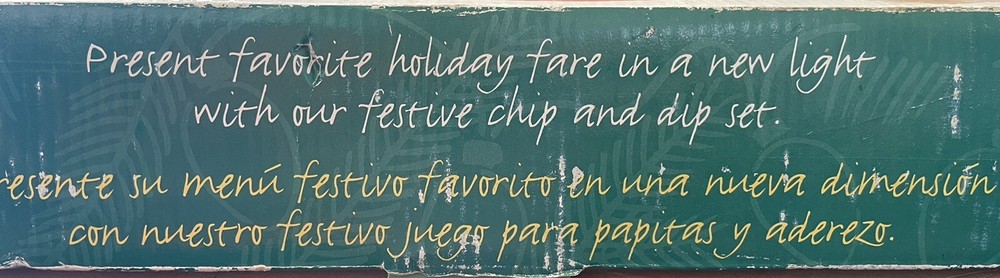 Present favorite holiday fare in a new light
with our festive chip and dip set.
resente su menú festivo favorito en una nueva dimensión
con nuestro festivo juego para papitas y aderezo.